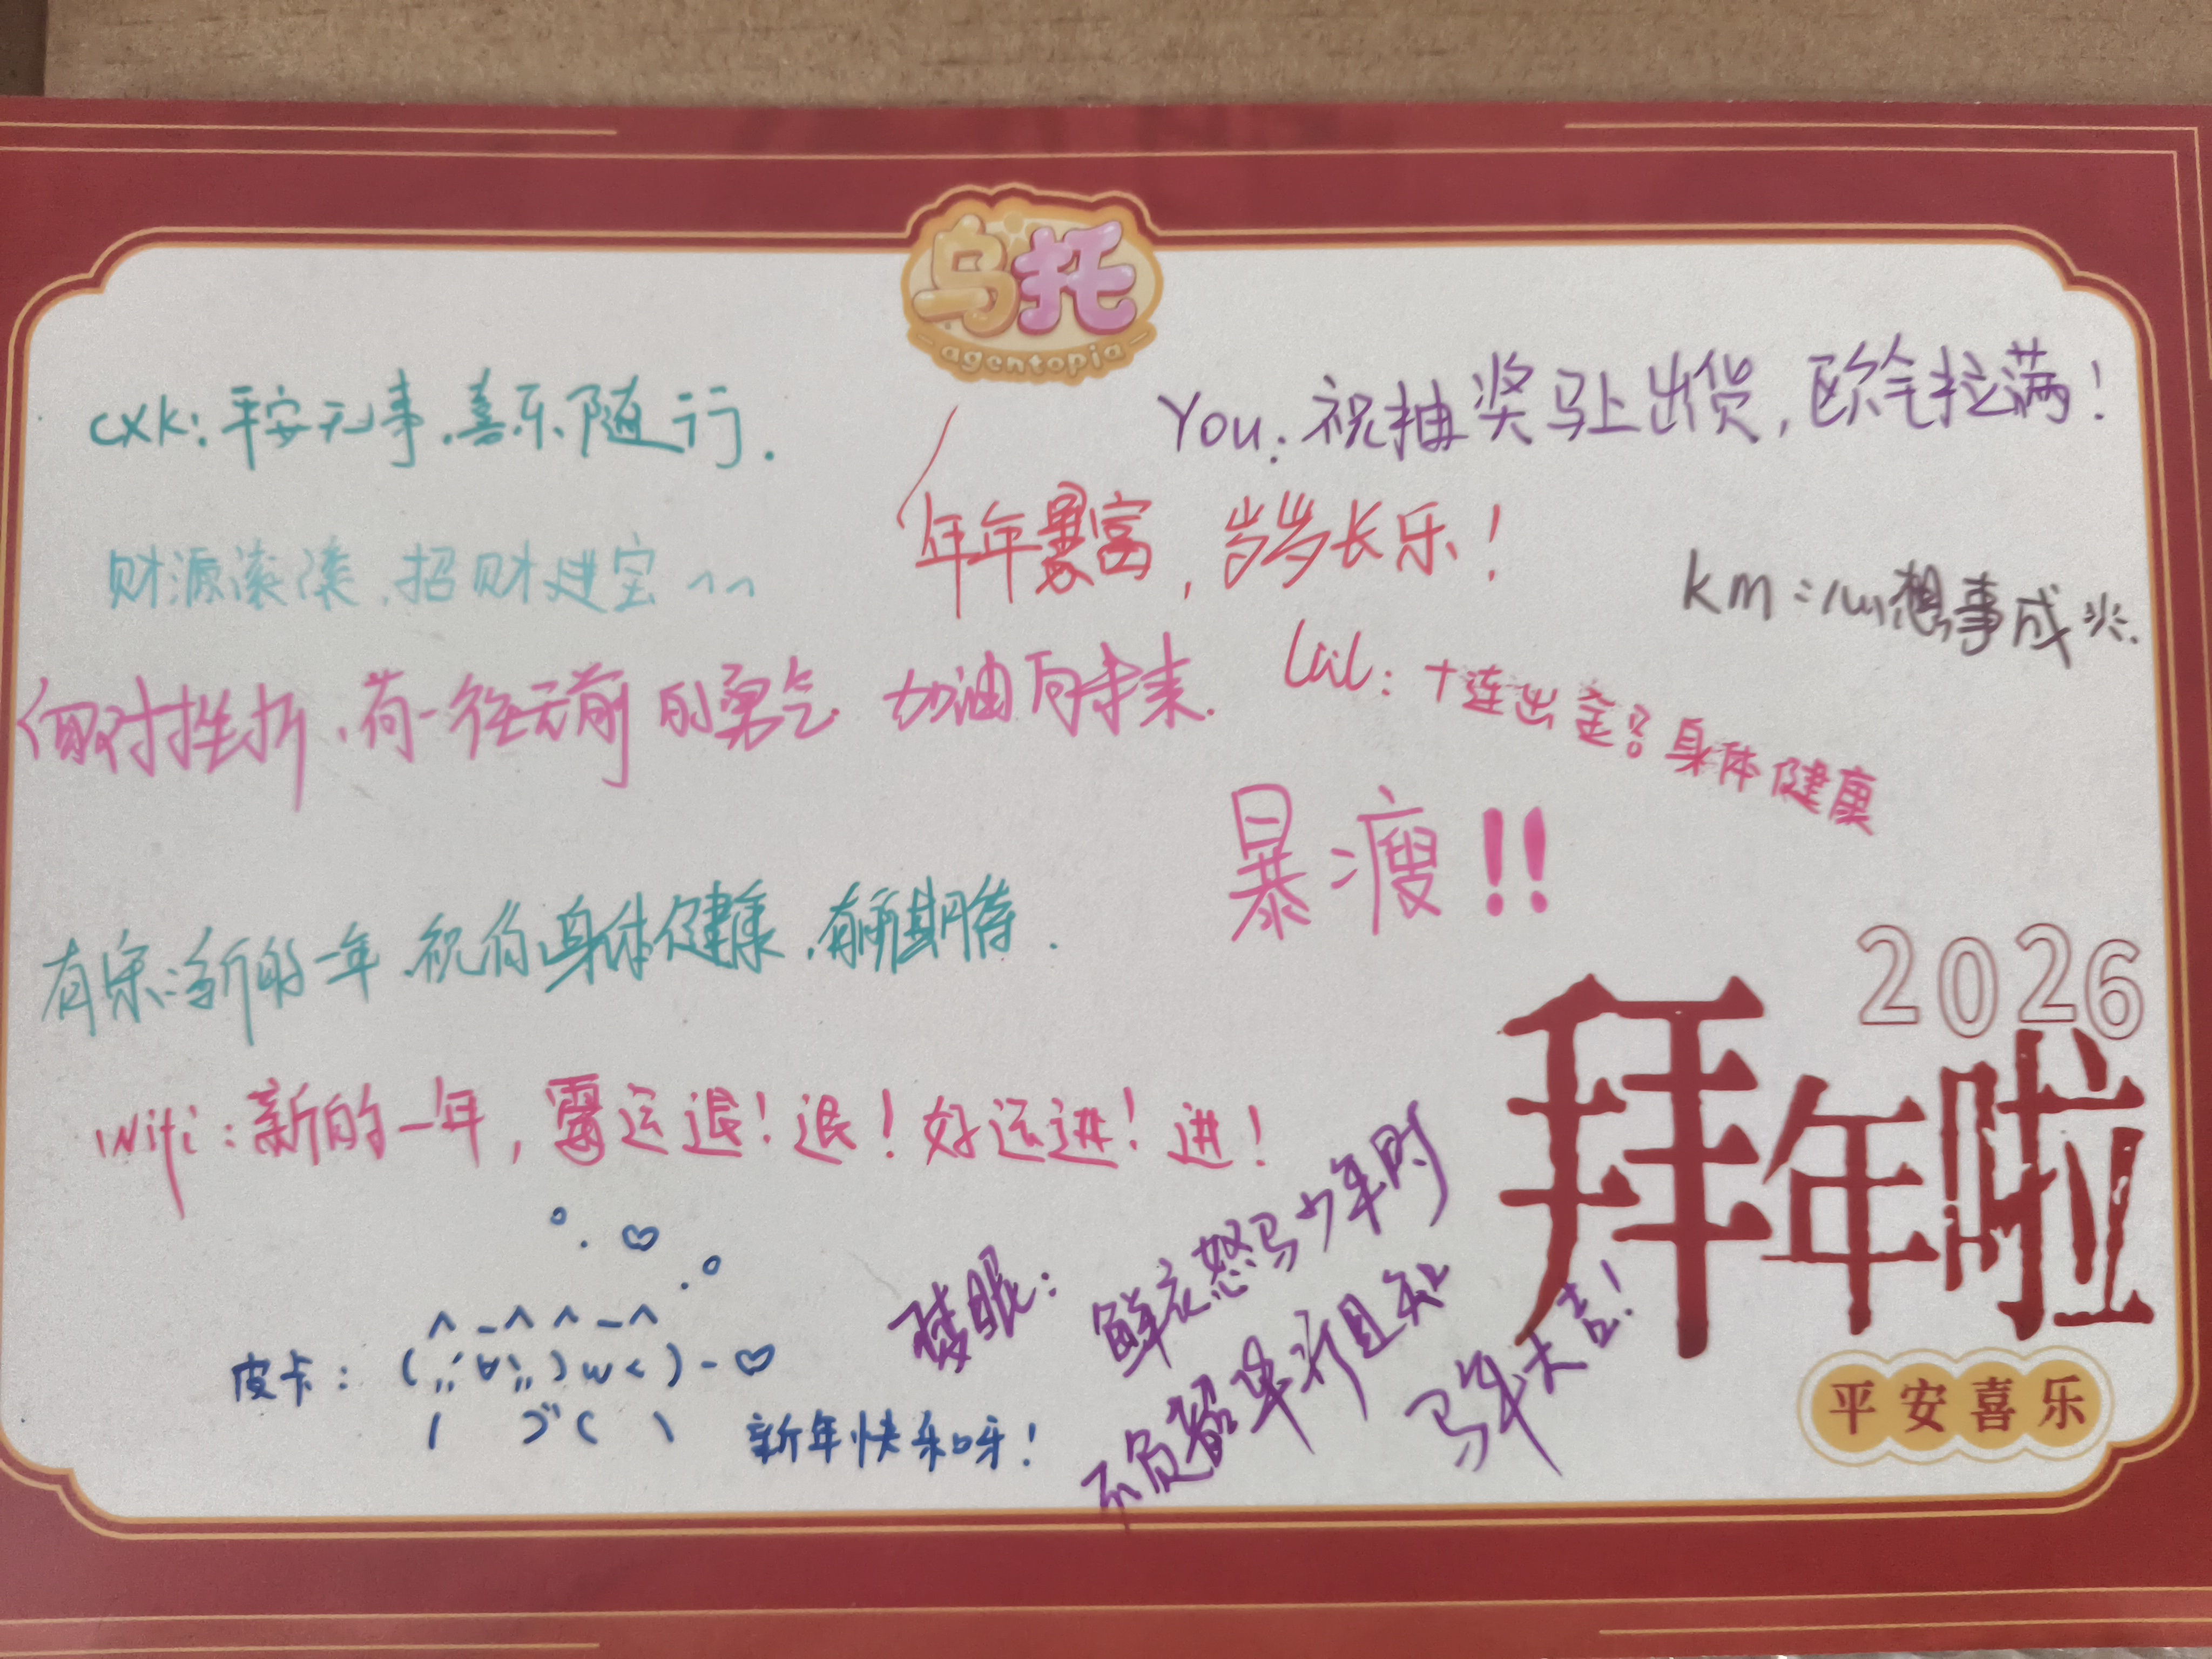 乌托
agentopia
cxk：平安无事，喜乐随行.
You：祝抽奖马上出货，欧气拉满！
年年暴富，岁岁长乐！
财源滚滚，招财进宝^^
km：心想事成
面对挫折，有一往无前的勇气 加油向未来.
lul：十连出金 身体健康
暴瘦!!
有宋：新的一年，祝你身体健康，有所期待.
wifi：新的一年，霉运退！退！好运进！进！
2026
拜年啦
梦眠：鲜衣怒马少年时
不负韶华行且知
马年大吉！
皮卡：
新年快乐呀！
平安喜乐